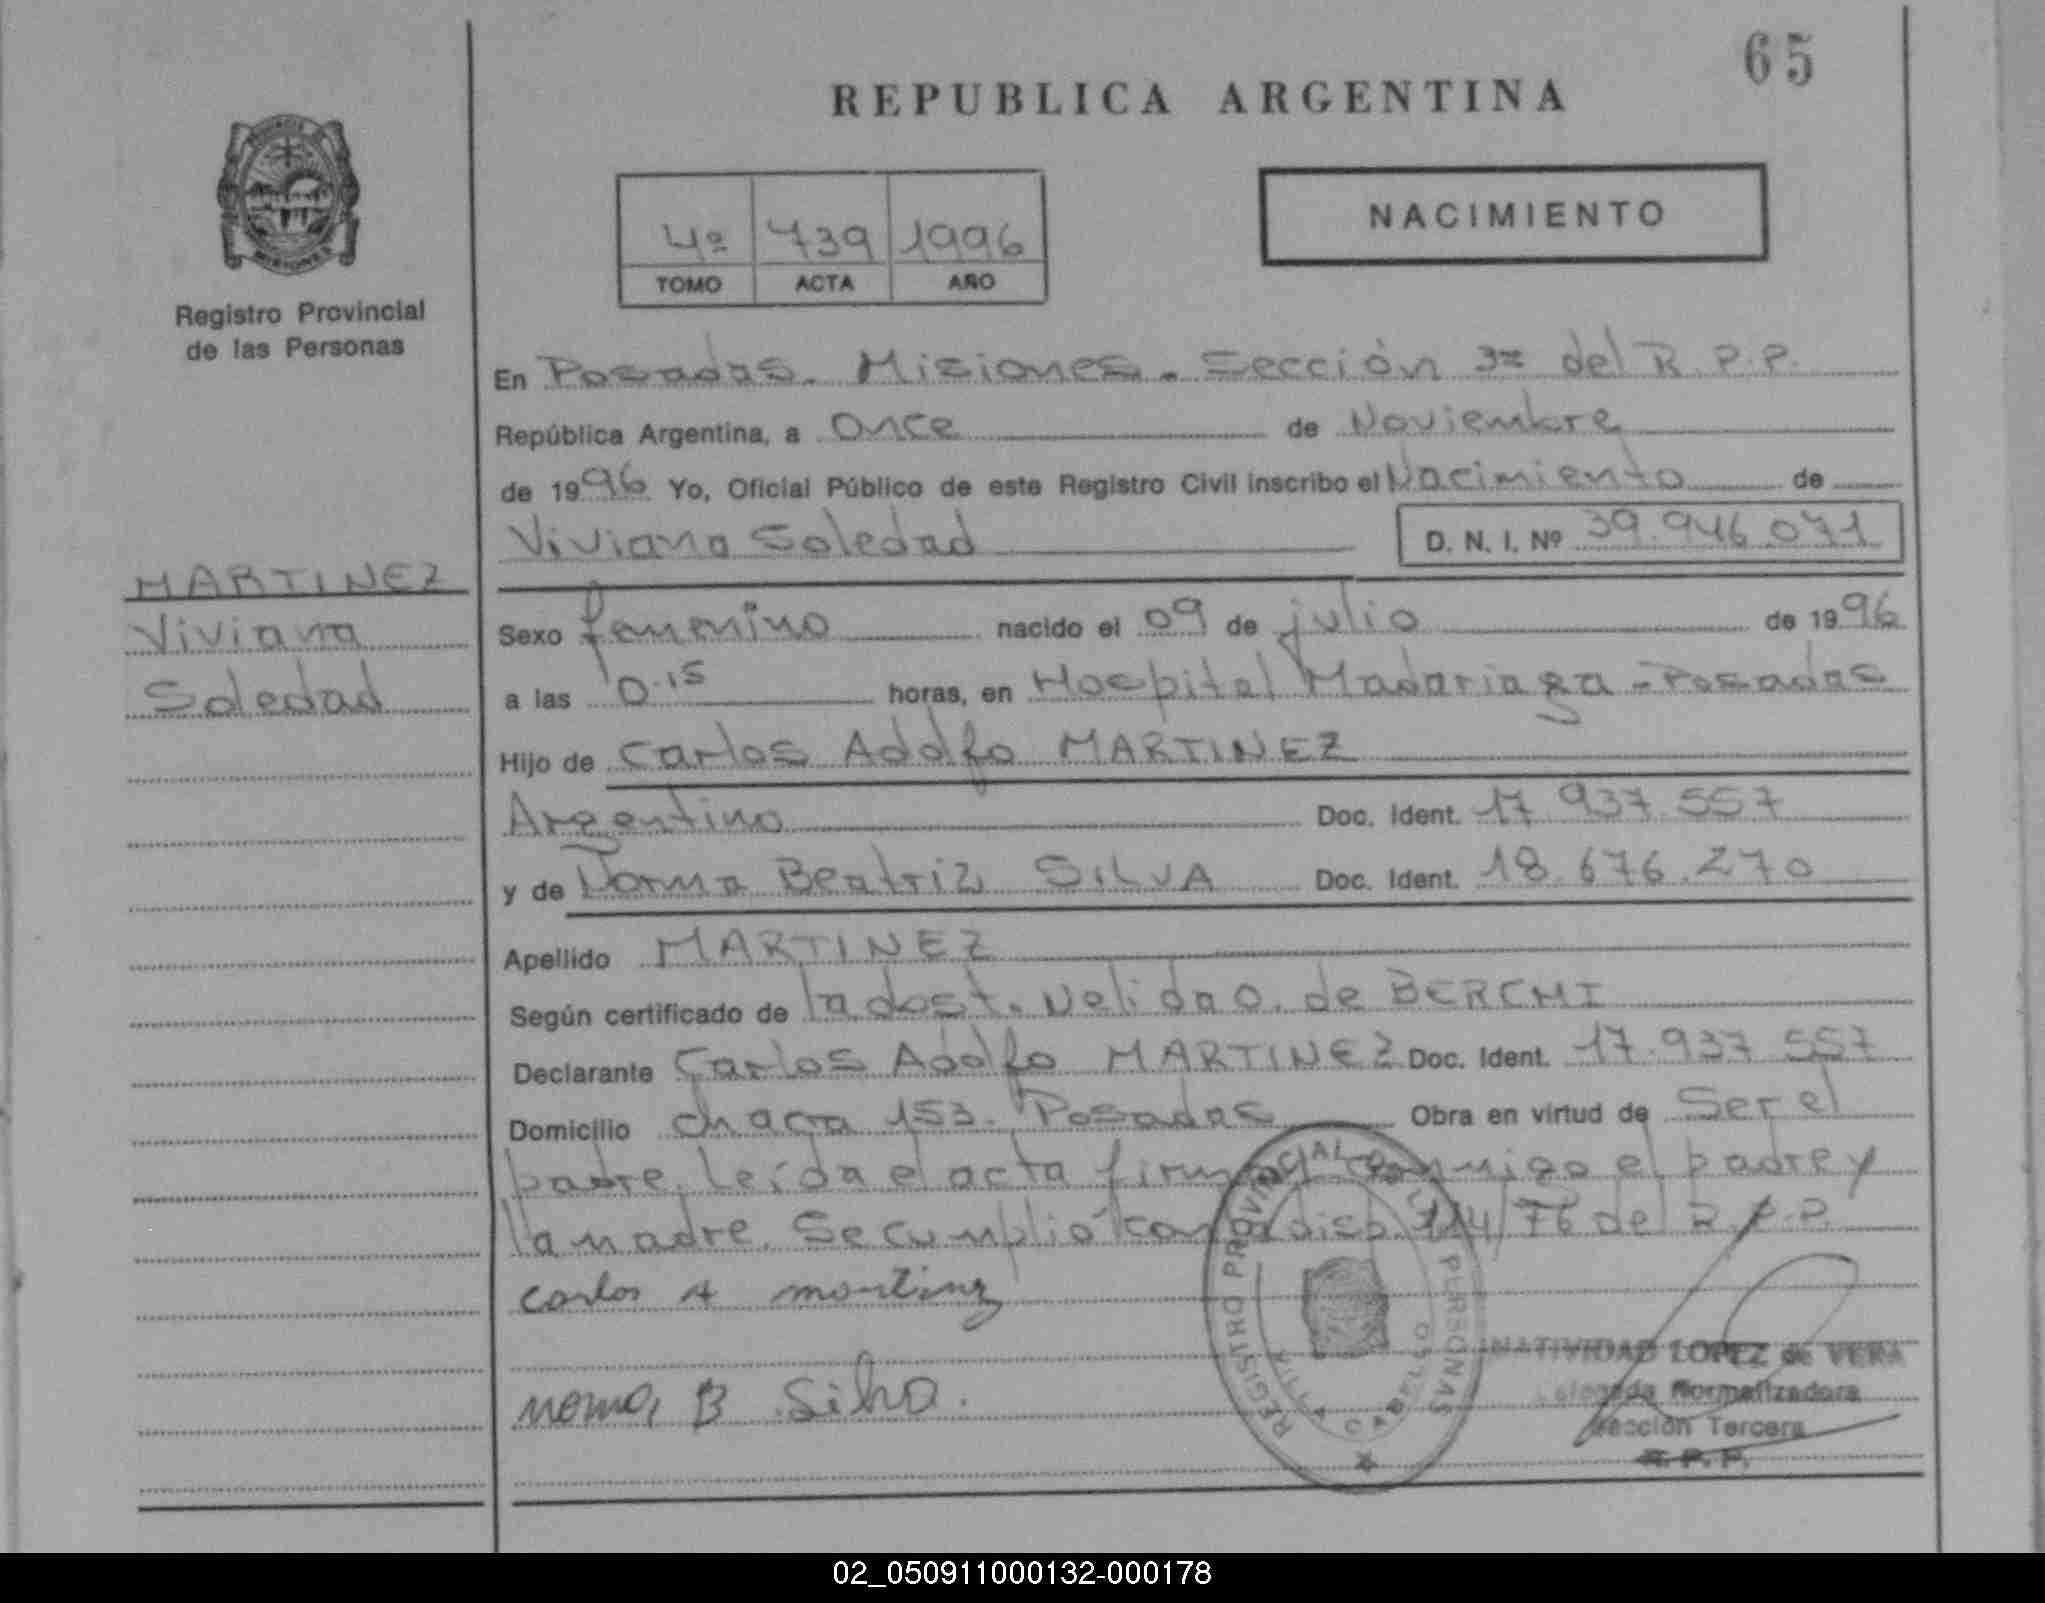 65
REPUBLICA ARGENTINA
NACIMIENTO
4º 739 1996
TOMO ACTA AÑO
PROVINCIA DE
MISIONES
Registro Provincial
de las Personas
En Posadas. Misiones. Sección 3ª del R.P.P.
República Argentina, a Once de Noviembre
de 1996 Yo, Oficial Público de este Registro Civil inscribo el Nacimiento de
Viviana Soledad D. N. I. Nº 39.946.071
MARTINEZ
Viviana
Soledad
Sexo femenino nacido el 09 de julio de 1996
a las 0.15 horas, en Hospital Madariaga - Posadas
Hijo de Carlos Adolfo MARTINEZ
Argentino Doc. Ident. 17.937.557
y de Norma Beatriz SILVA Doc. Ident. 18.676.270
Apellido MARTINEZ
Según certificado de la dost. Nelida O. de BERCHI
Declarante Carlos Adolfo MARTINEZ Doc. Ident. 17.937.557
Domicilio chacra 153. Posadas Obra en virtud de Ser el
padre. Leída el acta firma conmigo el padre y
la madre. Se cumplió con disp. 114/76 del R.P.P.
carlos A martinz
norma B Silva.
REGISTRO PROVINCIAL DE LAS PERSONAS
NATIVIDAD LOPEZ de VERA
Delegada Normalizadora
Sección Tercera
R. P. P.
02_050911000132-000178